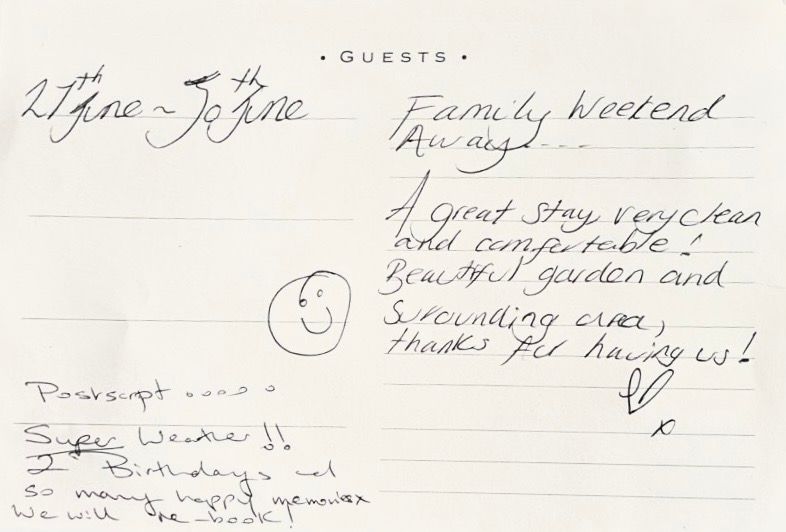 • GUESTS •
27th June ~ 30th June
Family Weekend
Away....
A great stay very clean
and comfortable!
Beautiful garden and
surrounding area,
thanks for having us!
x
Postscript .....
Super Weather!!
2 Birthdays and
so many happy memories x
We will re-book!